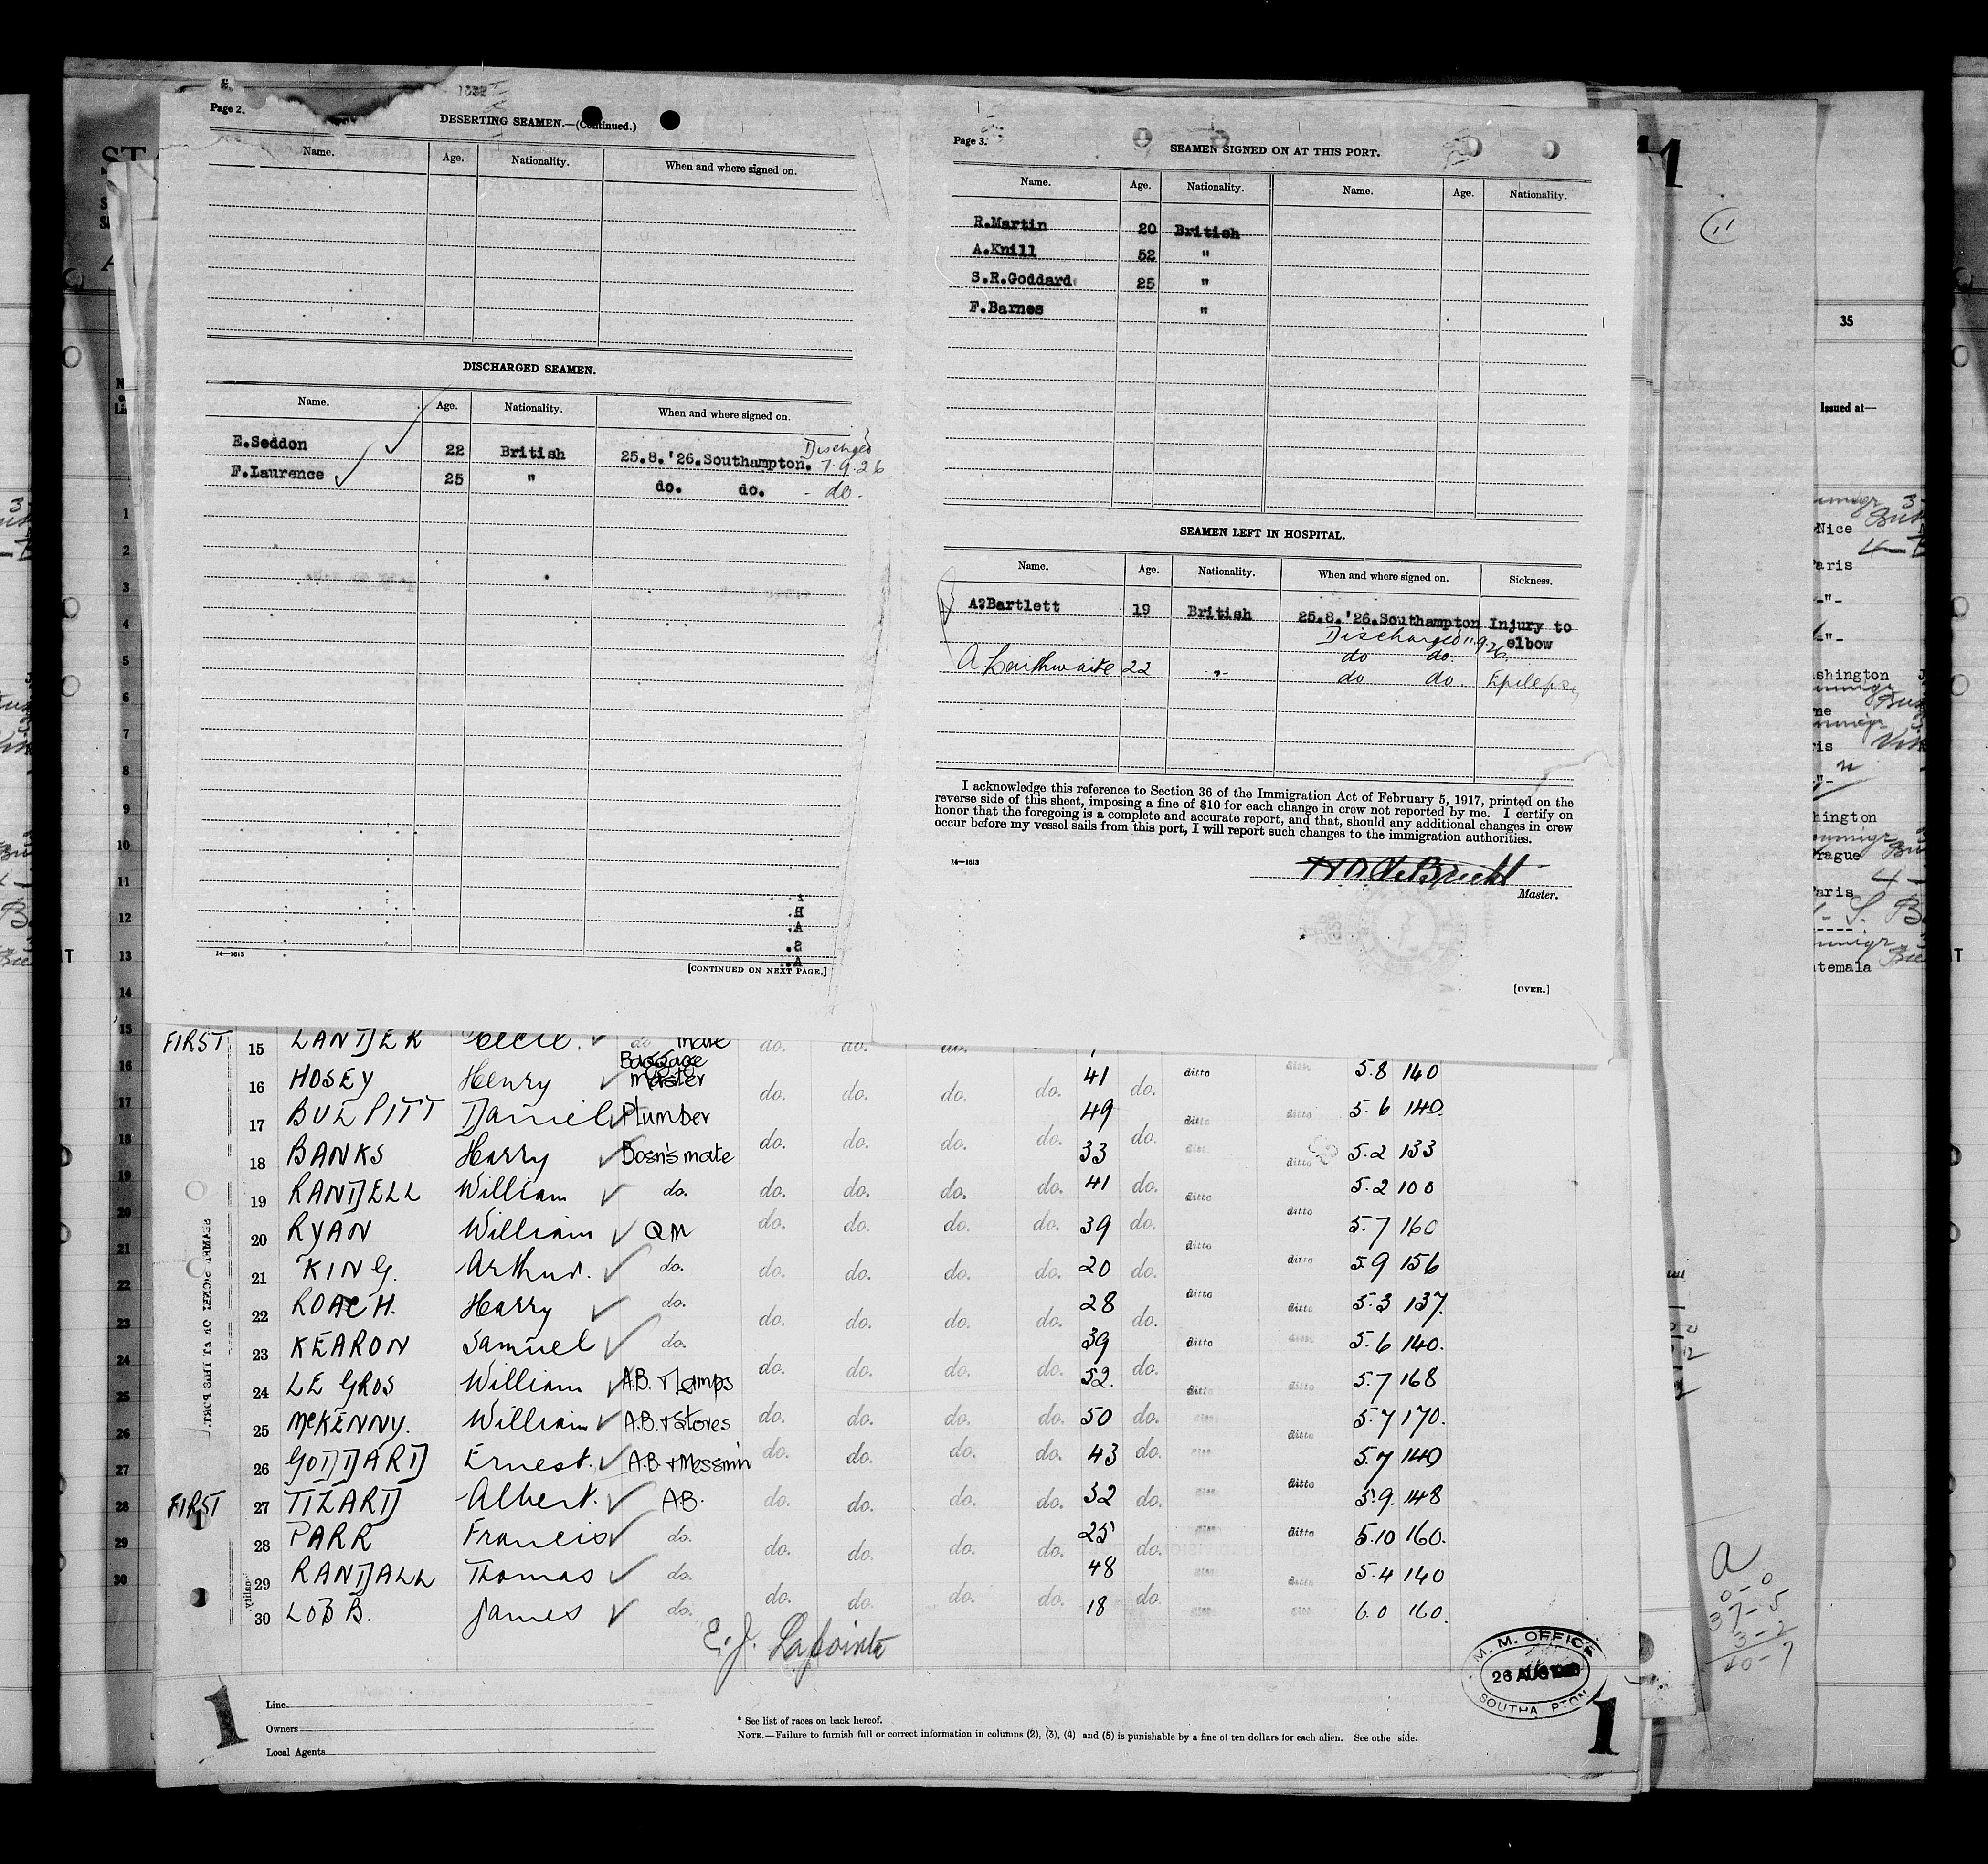 Page 2.
DESERTING SEAMEN.—(Continued.)
Name. Age. Nationality. When and where signed on.
DISCHARGED SEAMEN.
Name. Age. Nationality. When and where signed on.
E.Seddon 22 British 25.8.'26.Southampton. 7.9.26
F.Laurence 25 " do. do. - do -
14—1613
[CONTINUED ON NEXT PAGE.]
Page 3.
SEAMEN SIGNED ON AT THIS PORT.
Name. Age. Nationality. Name. Age. Nationality.
R.Martin 20 British
A.Knill 52 "
S.R.Goddard 25 "
F.Barnes "
SEAMEN LEFT IN HOSPITAL.
Name. Age. Nationality. When and where signed on. Sickness.
A?Bartlett 19 British 25.8.'26.Southampton Injury to
Discharged 11.9.26 elbow
do do.
A Laithwaite 22 " do do.
I acknowledge this reference to Section 36 of the Immigration Act of February 5, 1917, printed on the
reverse side of this sheet, imposing a fine of $10 for each change in crew not reported by me. I certify on
honor that the foregoing is a complete and accurate report, and that, should any additional changes in crew
occur before my vessel sails from this port, I will report such changes to the immigration authorities.
14—1613
Master.
[OVER.]
FIRST 15 mate do. do. do.
16 HOSEY Henry Baggage Master do. do. do. do. 41 do. ditto 5.8 140
17 BULPITT Daniel Plumber do. do. do. do. 49 do. ditto ditto 5.6 140.
18 BANKS Harry Bosn's mate do. do. do. do. 33 do. ditto 5.2 133
19 RANDELL William do. do. do. do. do. 41 do. ditto ditto 5.2 100
20 RYAN William QM do. do. do. do. 39 do. ditto 5.7 160
21 KING. Arthur. do. do. do. do. do. 20 do. ditto 5.9 156
22 ROACH. Harry do. do. do. do. do. 28 do. ditto ditto 5.3 137.
23 KEARON Samuel do. do. do. do. do. 39 do. ditto 5.6 140.
24 LE GROS William A.B. + Lamps do. do. do. do. 52. do. ditto ditto 5.7 168
25 McKENNY. William A.B. + Stores do. do. do. do. 50 do. ditto 5.7 170.
26 GODDARD Ernest. A.B. + Messmn do. do. do. do. 43 do. 5.7 140
FIRST 27 TIZARD Albert. A.B. do. do. do. do. 32 do. ditto 5.9. 148
28 PARR Francis do. do. do. do. do. 25 do. ditto 5.10 160.
29 RANDALL Thomas do. do. do. do. do. 48 do. ditto 5.4 140
30 LOBB. James do. do. do. do. do. 18 do. 6.0 160.
E. J. Lapointe
1
Line
Owners
Local Agents
* See list of races on back hereof.
NOTE.—Failure to furnish full or correct information in columns (2), (3), (4) and (5) is punishable by a fine of ten dollars for each alien. See othe side.
M. M. OFFICE
26 AUG
SOUTHA PTON
1
11
35
Issued at—
Nice
Paris
-"-
-"-
shington
hington
rague
Paris
temala
1
2
3
4
5
6
7
8
9
10
11
12
13
14
15
16
17
18
19
20
21
22
23
24
25
26
27
28
29
30